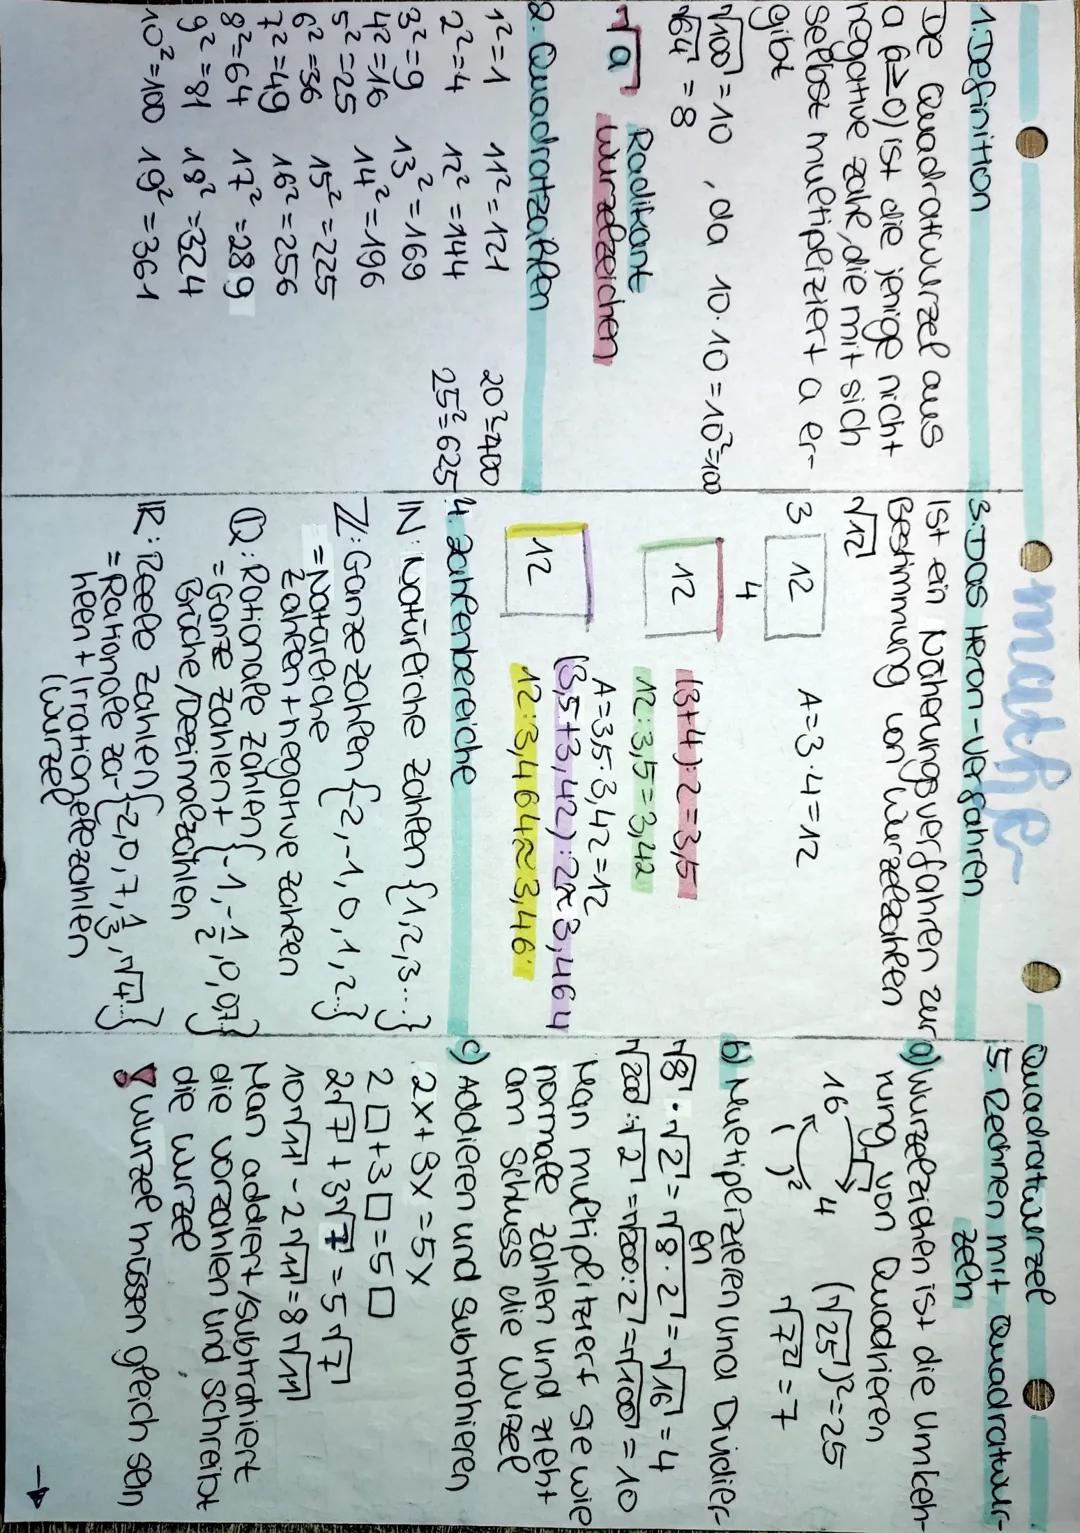 mathe
Quadratwurzel
1. Definition
De Quadratwurzel aus
a (a≥0) ist die jenige nicht
negative Zahl, die mit sich
selbst multipliziert a er-
gibt
√100 = 10 , da 10·10 = 10²=100
√64 = 8
√a Radikant
Wurzelzeichen
2. Quadratzahlen
1²=1 11²=121 20²=400
2²=4 12²=144 25²=625
3²=9 13²=169
4²=16 14²=196
5²=25 15²=225
6²=36 16²=256
7²=49 17²=289
8²=64 18²=324
9²=81 19²=361
10²=100
3. Das Heron-Verfahren
Ist ein Näherungsverfahren zur
Bestimmung von Wurzelzahlen
√12
3 12 A=3·4=12
4
12 (3+4):2=3,5
12:3,5=3,42
A=3,5·3,42=12
12 (3,5+3,42):2≈3,464
12:3,464≈3,46
4. Zahlenbereiche
ℕ: Natürliche Zahlen {1,2,3...}
ℤ: Ganze Zahlen {-2,-1,0,1,2..}
=Natürliche
Zahlen+negative Zahlen
ℚ: Rationale Zahlen {-1,-1/2,0,0,7..}
=Ganze Zahlen+
Brüche/Dezimalzahlen
ℝ: Reelle Zahlen {-2,0,7,1/3,√4..}
=Rationale Za-
hlen+Irrationalezahlen
(Wurzel)
5. Rechnen mit Quadratwur-
zeln
a) Wurzelziehen ist die Umkeh-
rung von Quadrieren
16 √ 4 (√25)²=25
( )² √7²=7
b) Multiplizieren und Dividier-
en
√8·√2=√8·2=√16=4
√200:√2=√200:2=√100=10
Man multiplitziert sie wie
normale Zahlen und zieht
am Schluss die Wurzel
c) Addieren und Subtrahieren
2x+3x=5x
2□+3□=5□
2√7+3√7=5√7
10√11-2√11=8√11
Man addiert/subtrahiert
die Vorzahlen und schreibt
die Wurzel
! Wurzel müssen gleich sein
→